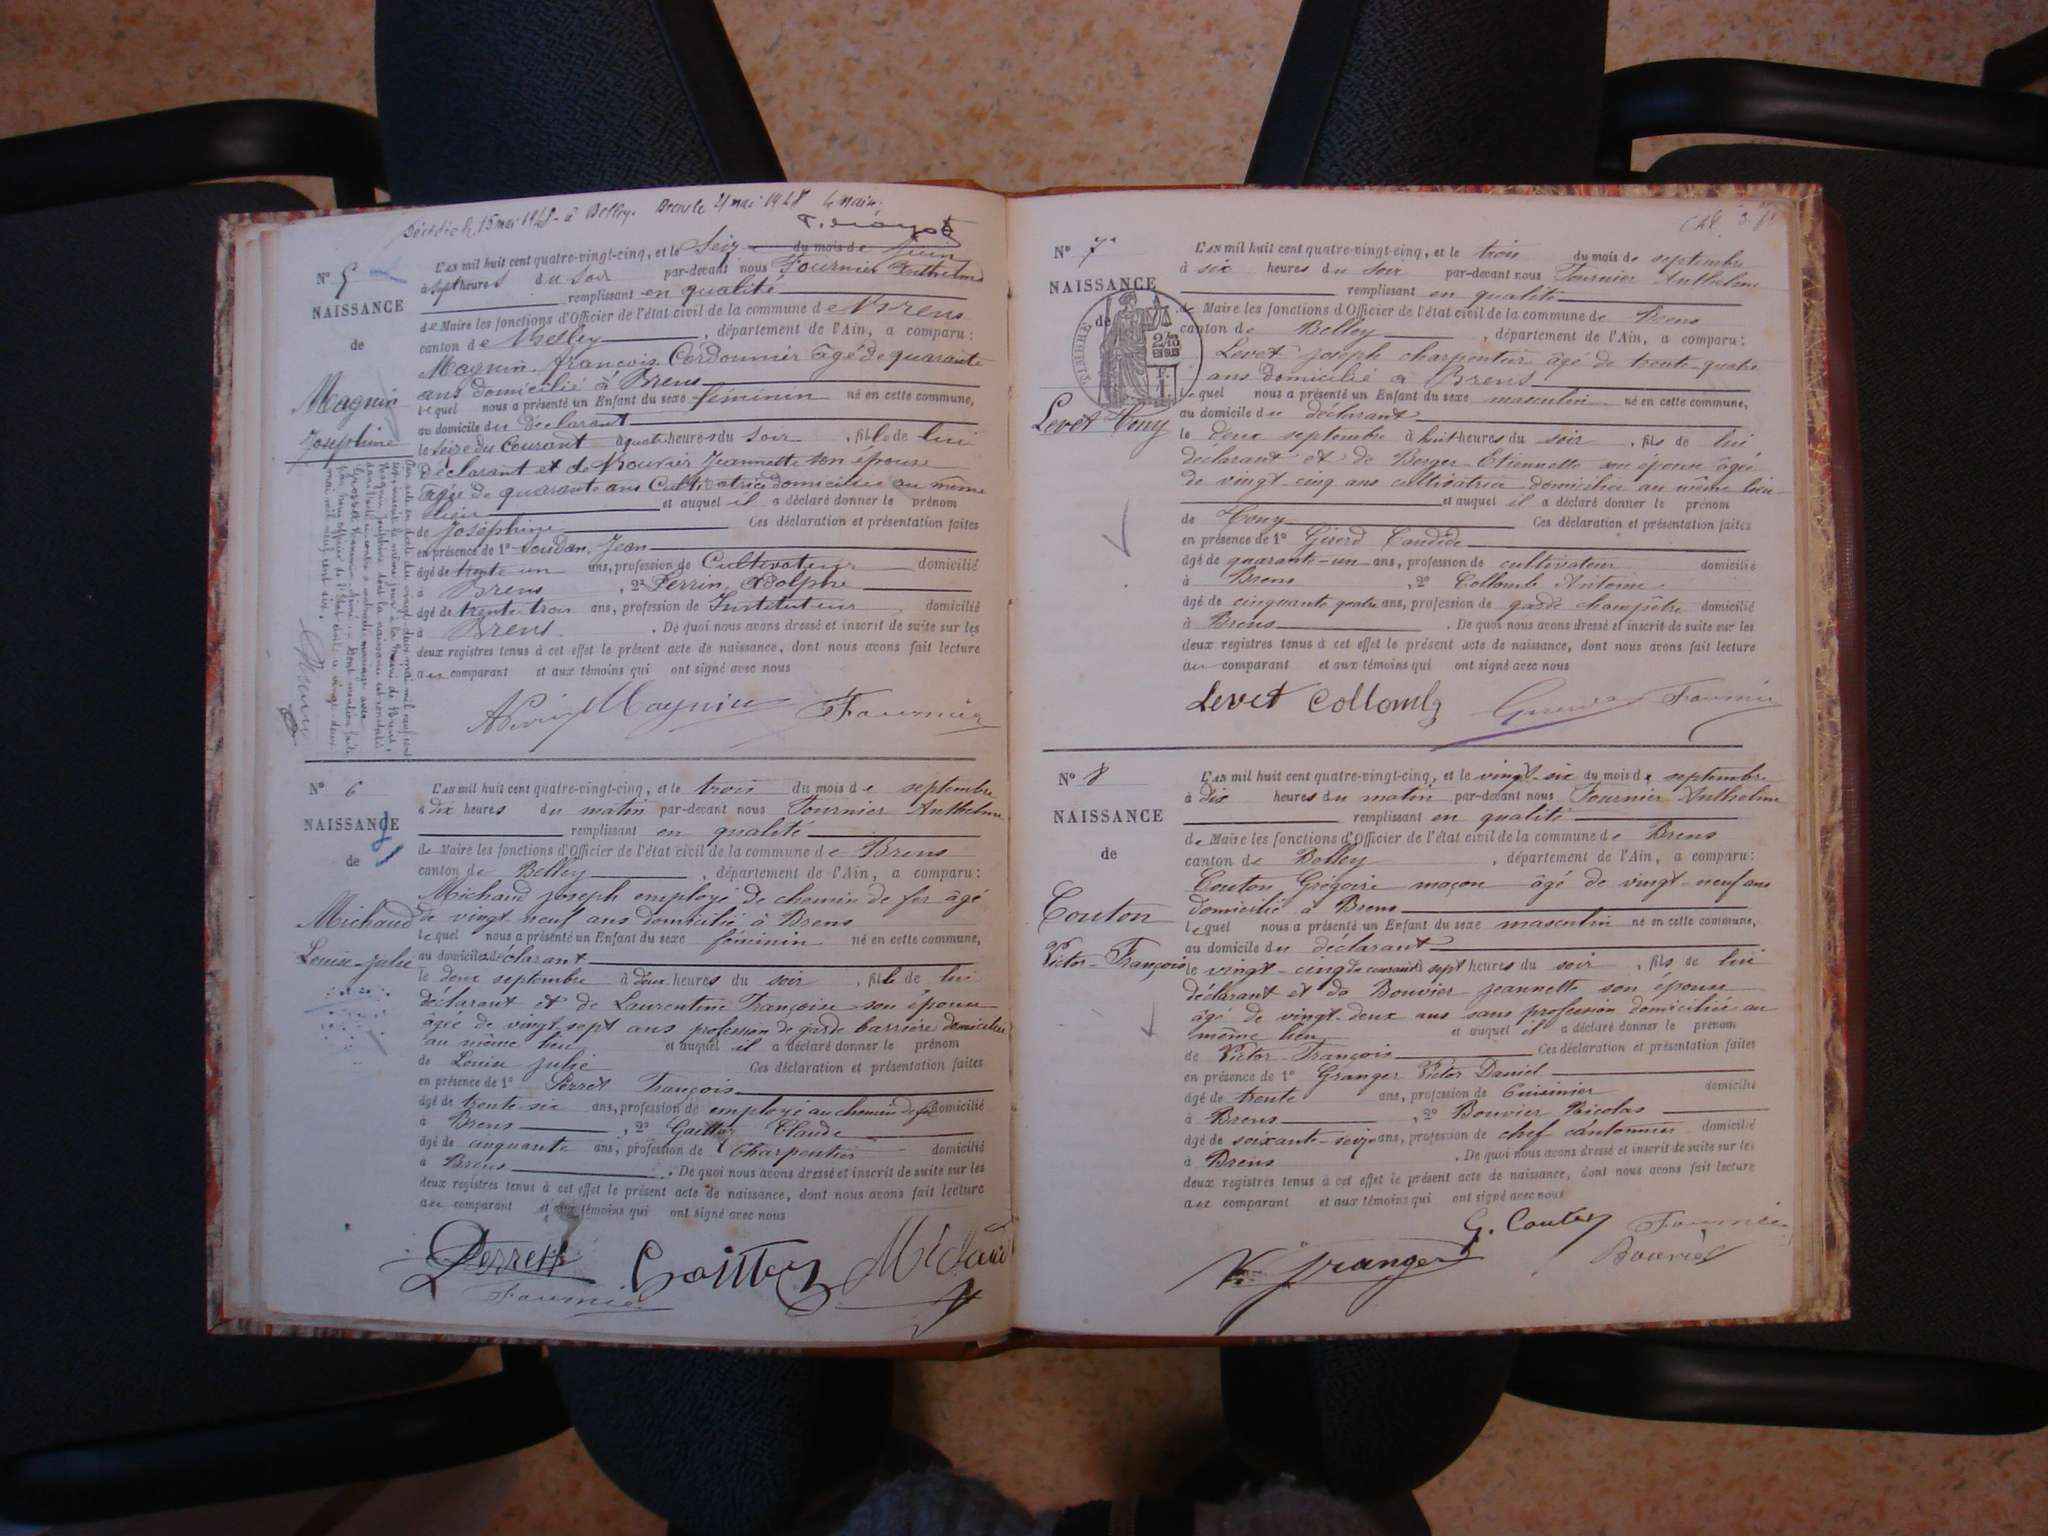 Décédée le 15 mai 1948 à Belley. Brens le 21 mai 1948 Le Maire
N° 5
NAISSANCE
de
Magnin
Joséphine
L'AN mil huit cent quatre-vingt-cinq, et le Seize du mois de Juin
à sept heures du Soir par-devant nous Fournier Anthelme
remplissant en qualité
de Maire les fonctions d'Officier de l'état civil de la commune de Brens
canton de Belley, département de l'Ain, a comparu:
Magnin François Cordonnier âgé de quarante
ans domicilié à Brens
lequel nous a présenté un Enfant du sexe féminin né en cette commune,
au domicile du déclarant
le Seize du Courant à quatre heures du Soir, fille de lui
déclarant et de Bouvier Jeannette son épouse
âgée de quarante ans Cultivatrice domiciliée au même
lieu et auquel il a déclaré donner le prénom
de Joséphine Ces déclaration et présentation faites
en présence de 1° Soudan Jean
âgé de trente un ans, profession de Cultivateur domicilié
à Brens, 2° Perrin, Adolphe
âgé de trente trois ans, profession de Instituteur domicilié
à Brens. De quoi nous avons dressé et inscrit de suite sur les
deux registres tenus à cet effet le présent acte de naissance, dont nous avons fait lecture
au comparant et aux témoins qui ont signé avec nous
A Perrin Magnin Fournier
N° 6
NAISSANCE
de
Michaud
Louise-Julie
L'AN mil huit cent quatre-vingt-cinq, et le trois du mois de septembre
à dix heures du matin par-devant nous Fournier Anthelme
remplissant en qualité
de Maire les fonctions d'Officier de l'état civil de la commune de Brens
canton de Belley, département de l'Ain, a comparu:
Michaud Joseph employé de chemin de fer âgé
de vingt-neuf ans domicilié à Brens
lequel nous a présenté un Enfant du sexe féminin né en cette commune,
au domicile déclarant
le deux septembre à deux heures du soir, fille de lui
déclarant et de Laurentine Françoise son épouse
âgée de vingt-sept ans profession de garde barrière domiciliée
au même lieu et auquel il a déclaré donner le prénom
de Louise Julie Ces déclaration et présentation faites
en présence de 1° Perret François
âgé de trente-six ans, profession de employé au chemin de fer domicilié
à Brens, 2° Gaillay Claude
âgé de cinquante ans, profession de Charpentier domicilié
à Brens. De quoi nous avons dressé et inscrit de suite sur les
deux registres tenus à cet effet le présent acte de naissance, dont nous avons fait lecture
au comparant et aux témoins qui ont signé avec nous
Perret Michaud
Fournier
N° 7
NAISSANCE
de
TIMBRE
Levet Tony
L'AN mil huit cent quatre-vingt-cinq, et le trois du mois de septembre
à six heures du soir par-devant nous Fournier Anthelme
remplissant en qualité
de Maire les fonctions d'Officier de l'état civil de la commune de Brens
canton de Belley, département de l'Ain, a comparu:
Levet Joseph charpentier âgé de trente-quatre
ans domicilié à Brens
lequel nous a présenté un Enfant du sexe masculin né en cette commune,
au domicile du déclarant
le deux septembre à huit heures du soir, fils de lui
déclarant et de Berger Etiennette son épouse âgée
de vingt cinq ans cultivatrice domiciliée au même lieu
et auquel il a déclaré donner le prénom
de Tony Ces déclaration et présentation faites
en présence de 1° Girerd Candide
âgé de quarante-un ans, profession de cultivateur domicilié
à Brens, 2° Collomb Antoine
âgé de cinquante quatre ans, profession de garde champêtre domicilié
à Brens. De quoi nous avons dressé et inscrit de suite sur les
deux registres tenus à cet effet le présent acte de naissance, dont nous avons fait lecture
au comparant et aux témoins qui ont signé avec nous
Levet Collomb Fournier
N° 8
NAISSANCE
de
Couton
Victor-François
L'AN mil huit cent quatre-vingt-cinq, et le vingt-six du mois de septembre
à dix heures du matin par-devant nous Fournier Anthelme
remplissant en qualité
de Maire les fonctions d'Officier de l'état civil de la commune de Brens
canton de Belley, département de l'Ain, a comparu:
Couton Grégoire maçon âgé de vingt-neuf ans
domicilié à Brens
lequel nous a présenté un Enfant du sexe masculin né en cette commune,
au domicile du déclarant
le vingt-cinq du courant à sept heures du soir, fils de lui
déclarant et de Bouvier Jeannette son épouse
âgé de vingt-deux ans sans profession domiciliée au
même lieu et auquel il a déclaré donner le prénom
de Victor-François Ces déclaration et présentation faites
en présence de 1° Granger Victor Daniel
âgé de trente ans, profession de Cuisinier domicilié
à Brens, 2° Bouvier Nicolas
âgé de soixante-seize ans, profession de chef cantonnier domicilié
à Brens. De quoi nous avons dressé et inscrit de suite sur les
deux registres tenus à cet effet le présent acte de naissance, dont nous avons fait lecture
au comparant et aux témoins qui ont signé avec nous
G. Couton Fournier
V. Granger Bouvier